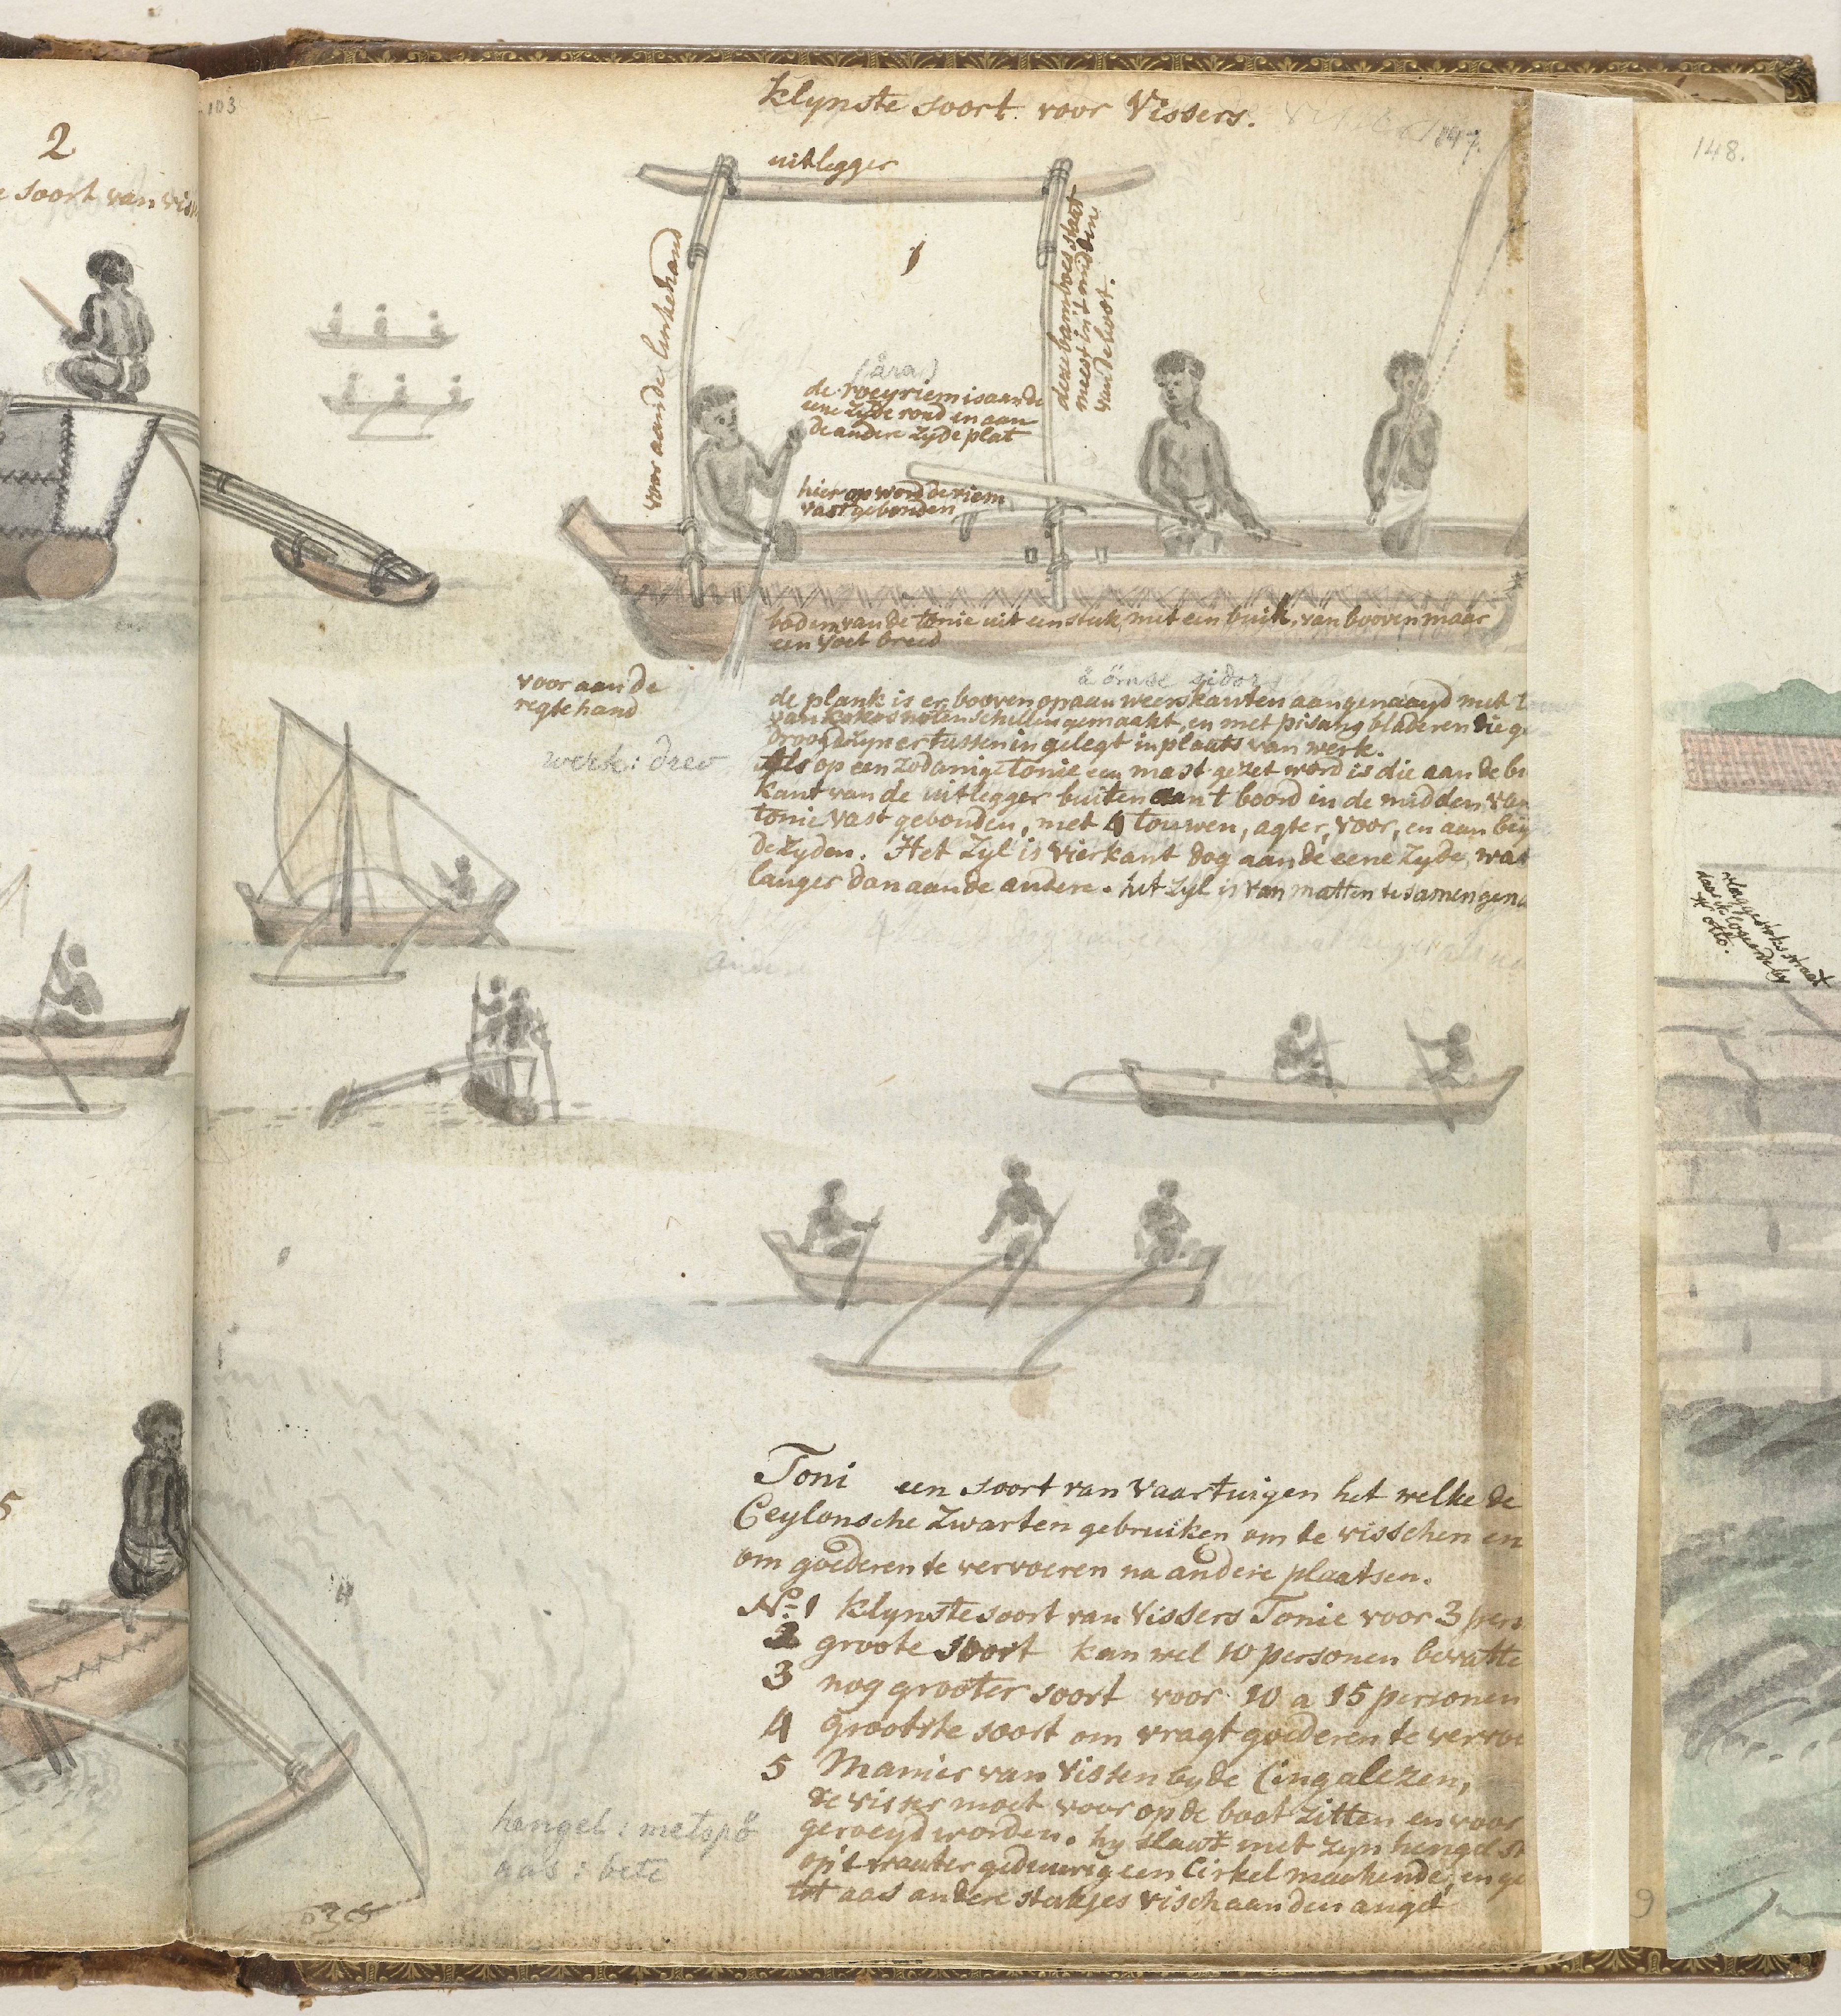 2
soort van
103
klynste soort voor Vissers.
147.
148.
uitlegger
1
voor aan de linkehand
deze bamboes staat
meest in't midden
van de boot.
(åra)
de roeyriem is aan de
eene zyde rond en aan
de andere zyde plat
hier op word de riem
vast gebonden
bodem van de tonie uit een stuk, met een buik, van booven maar
een voet breed
voor aan de
regte hand
de plank is er booven op aan weerskanten aangenaayd met
van kokosnoten schillen gemaakt, en met pisang bladeren die
droog zyn er tussen in gelegt in plaats van werk.
werk: drev
Als op een zodanige tonie een mast gezet word is die aan de
kant van de uitlegger buiten aan t boord in de midden van
tonie vast gebonden, met 4 touwen, agter, voor, en aan
de zyden. Het zyl is vierkant dog aan de eene zyde, wat
langer dan aan de andere. het zyl is van matten te samen
Toni een soort van vaartuigen het welke de
Ceylonsche Zwarten gebruiken om te visschen en
om goederen te vervoeren na andere plaatsen.
No. 1 klynste soort van Vissers Tonie voor 3 pers
2 groote soort kan wel 10 personen bevatte
3 nog grooter soort voor 10 a 15 personen
4 grootste soort om vragt goederen te vervoe
5 Manier van Vissen by de Cingalezen,
de visser moet voor op de boot zitten en voor
geroeyd worden. hy slaat met zyn hengel
op't water geduurig een Cirkel maakende, en
tot aas andere stukjes visch aan den angel
hengel: metspö
aas: bete
5
vlaggewinks straat
daar ik logeerde by
Hr Otto.
9